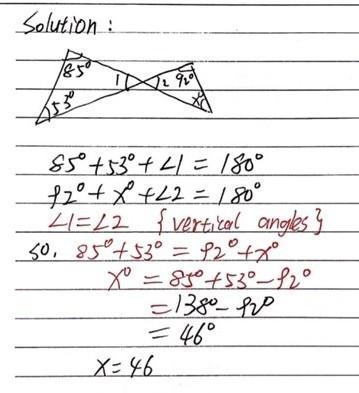 Solution :
85° 1 2 92°
53° x°
85°+53°+∠1=180°
92°+x°+∠2=180°
∠1=∠2 {vertical angles}
so, 85°+53°=92°+x°
x°=85°+53°-92°
=138°-92°
=46°
x=46